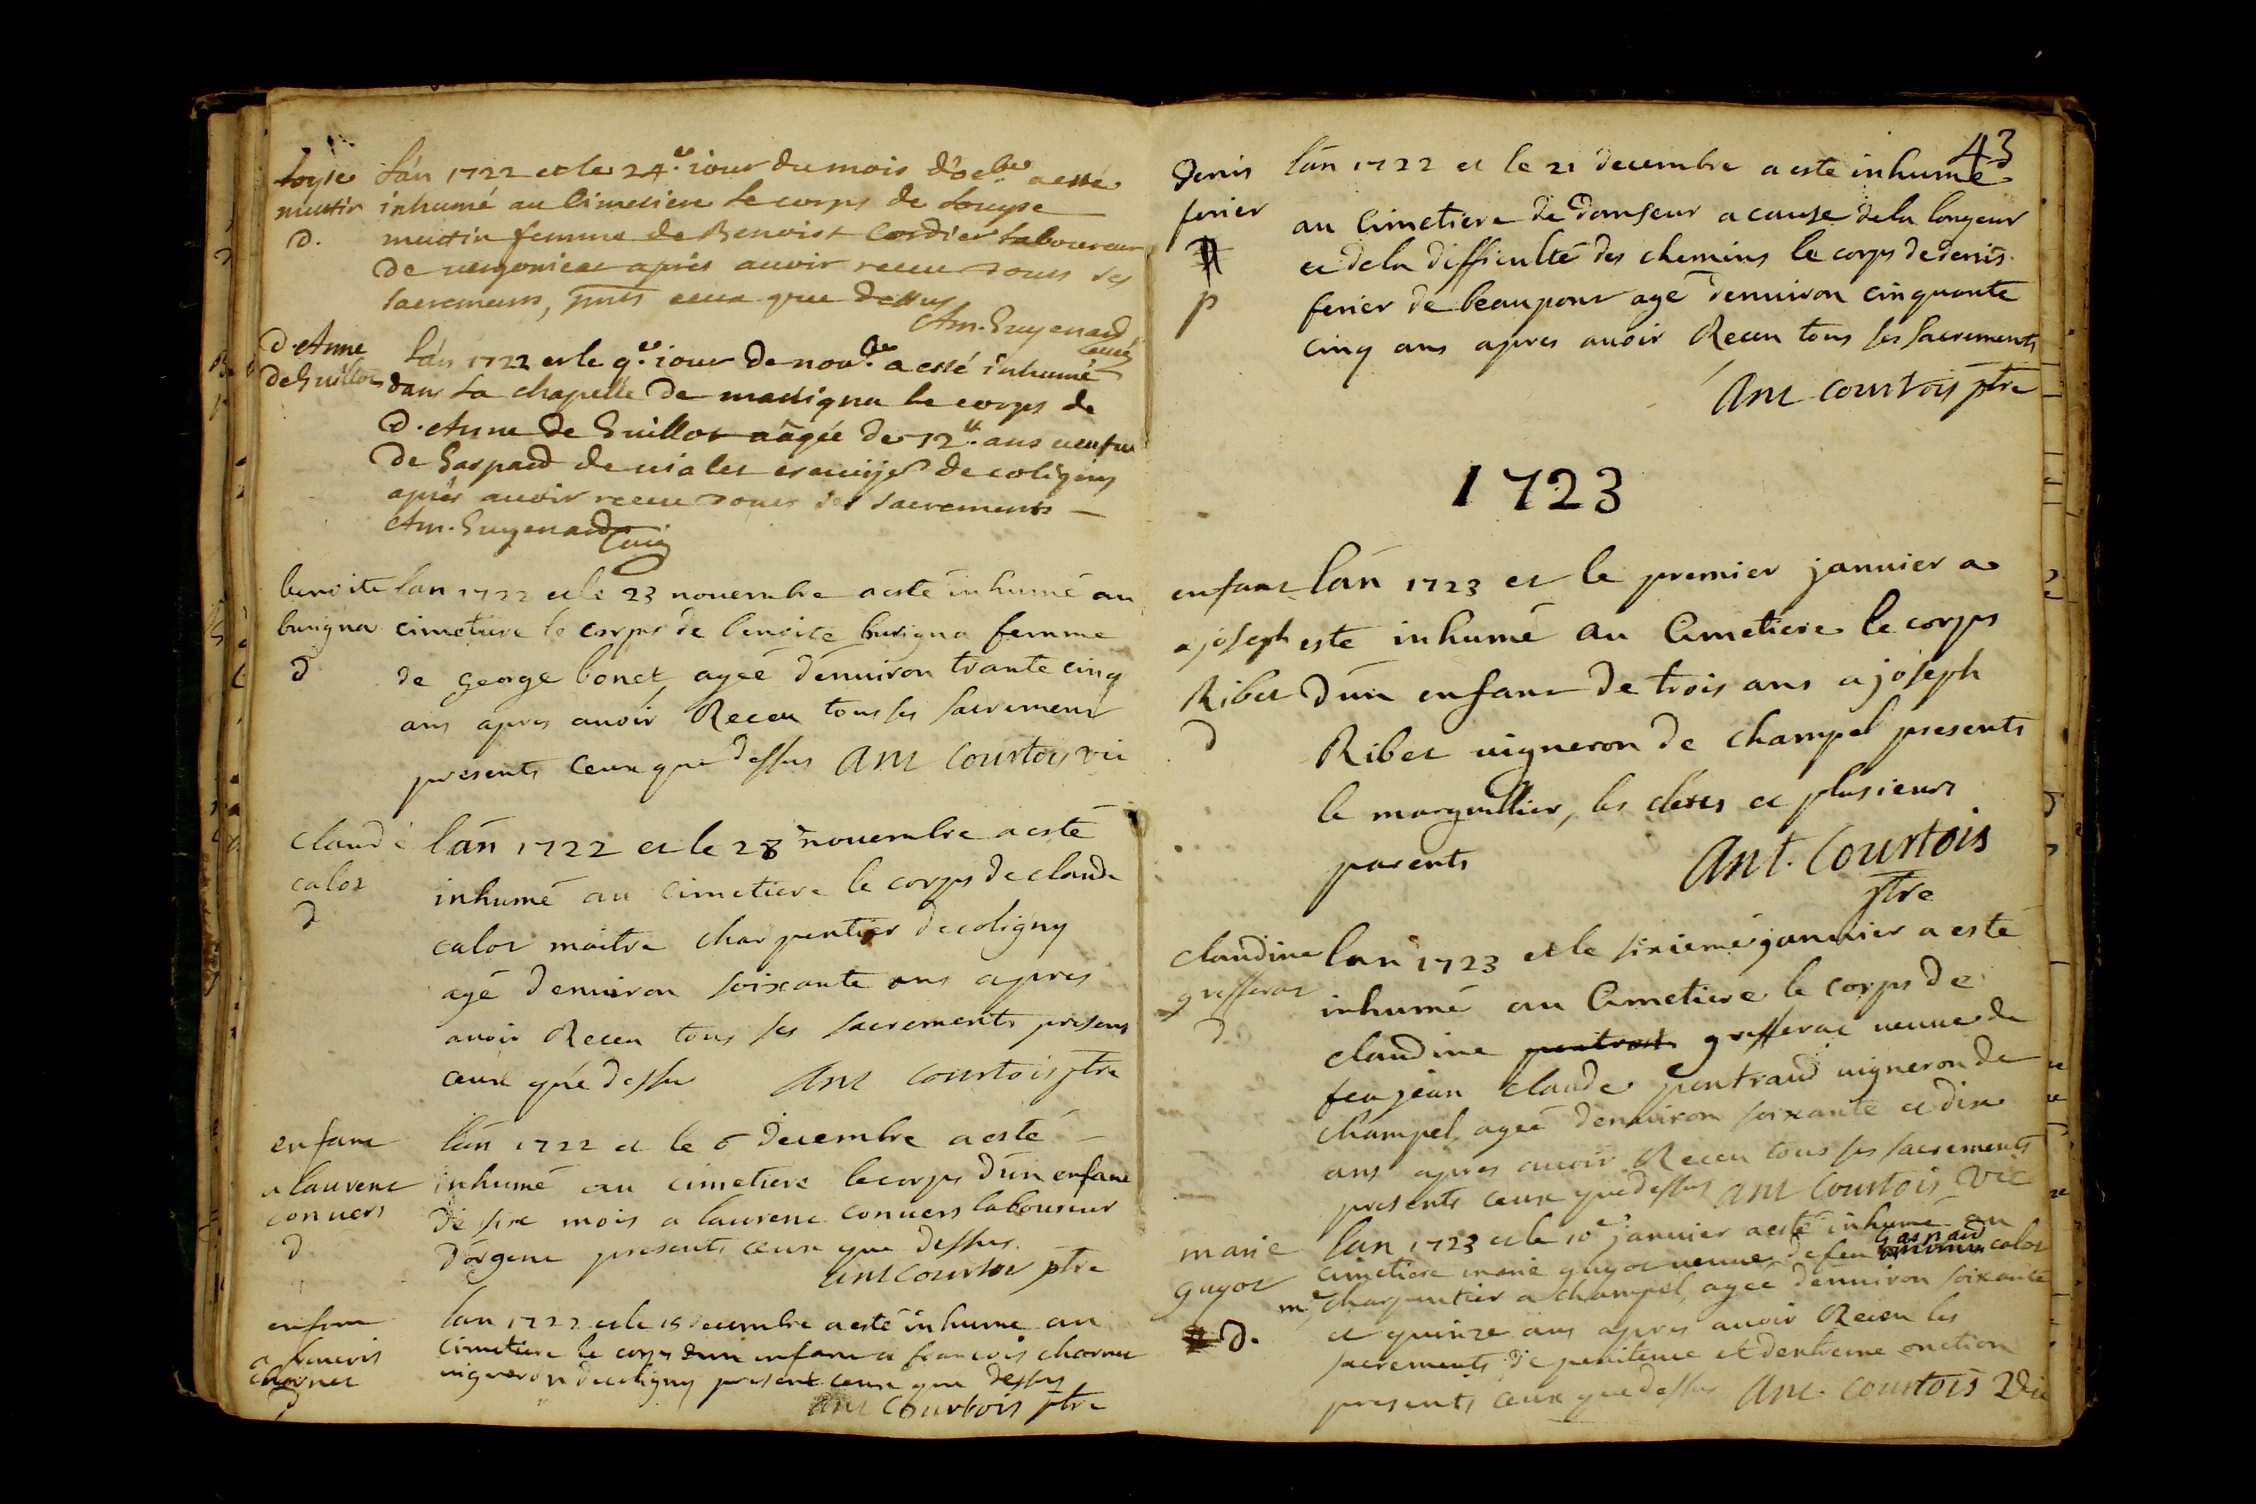 Loyse
muttin
d.
L'an 1722 et le 24e iour du mois d'oc.bre a esté
inhumé au Cimetiere le corps de Louyse
muttin femme de Benoist Cordier laboureur
de uergonieat aprés auoir receu tous ses
sacremens, pnts ceux que dessus
Am. Guyenard
Curé
d. Anne
de Guillot
L'an 1722 et le 9.e iour de nov.bre a esté inhumé
dans la chapelle de massigna le corps de
d. Anne de Guillot aâgée de 72 ans ueufue
de Gaspard de uialet escuyer de coligny
aprés auoir receu tous ses sacrements
Am. Guyenard Curé
benoite
burigna
d
lan 1722 et le 23 nouembre a esté inhumé au
cimetiere le corps de benoite burigna femme
de george bonet, agée d'enuiron trante cinq
ans apres auoir Receu tous ses sacrement
presents ceux que dessus Ant Courtois vic
claude
calot
d
l'an 1722 et le 28e nouembre a esté
inhumé au cimetiere le corps de claude
calot maitre charpentier de coligny
agé d'enuiron soixante ans apres
auoir Receu tous ses sacrements presens
ceux que dessus Ant courtois ptre
enfant
a laurent
conuers
d
l'an 1722 et le 6 decembre a esté
inhumé au cimetiere le corps d'un enfant
de six mois a laurent conuers laboureur
d'orgent presents ceux que dessus
ant courtois ptre
enfant
a francois
charnet
d
lan 1722 et le 15 decembre a esté inhumé au
cimetiere le corps d'un enfant a francois charnet
uigneron de coligny present ceux que dessus
ant Courtois ptre
43
Denis
ferier
p
l'an 1722 et le 21 decembre a este inhumé
au Cimetiere de Domseur a cause de la longeur
et de la difficulté des chemins le corps de denis
ferier de beaupont agé d'enuiron cinquante
cinq ans apres auoir Receu tous ses sacrements
Ant courtois ptre
1723
enfant
a joseph
Ribet
d
l'an 1723 et le premier januier a
este inhumé au Cimetiere le corps
d'un enfant de trois ans a joseph
Ribet uigneron de champel presents
le marguillier, les clercs et plusieurs
parents
Ant. Courtois
ptre
claudine
grefferat
d
lan 1723 et le sixieme januier a esté
inhumé au Cimetiere le corps de
claudine grefferat ueuue de
feu jean claude pontraud uigneron de
champel, agée d'enuiron soixante et dix
ans apres auoir Receu tous ses sacrements
presents ceux que dessus Ant Courtois vic
marie
guyot
d.
lan 1723 et le 10e januier a esté inhumé au
cimetiere marie guyot ueuue de feu Gaspard calot
me charpentier a champel, agée d'enuiron soixante
et quinze ans apres auoir Receu les
sacrements de penitence et d'extreme onction
presents ceux que dessus Ant. courtois Vic